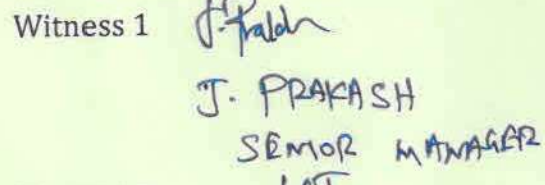 Witness 1
J. PRAKASH
SENIOR MANAGER